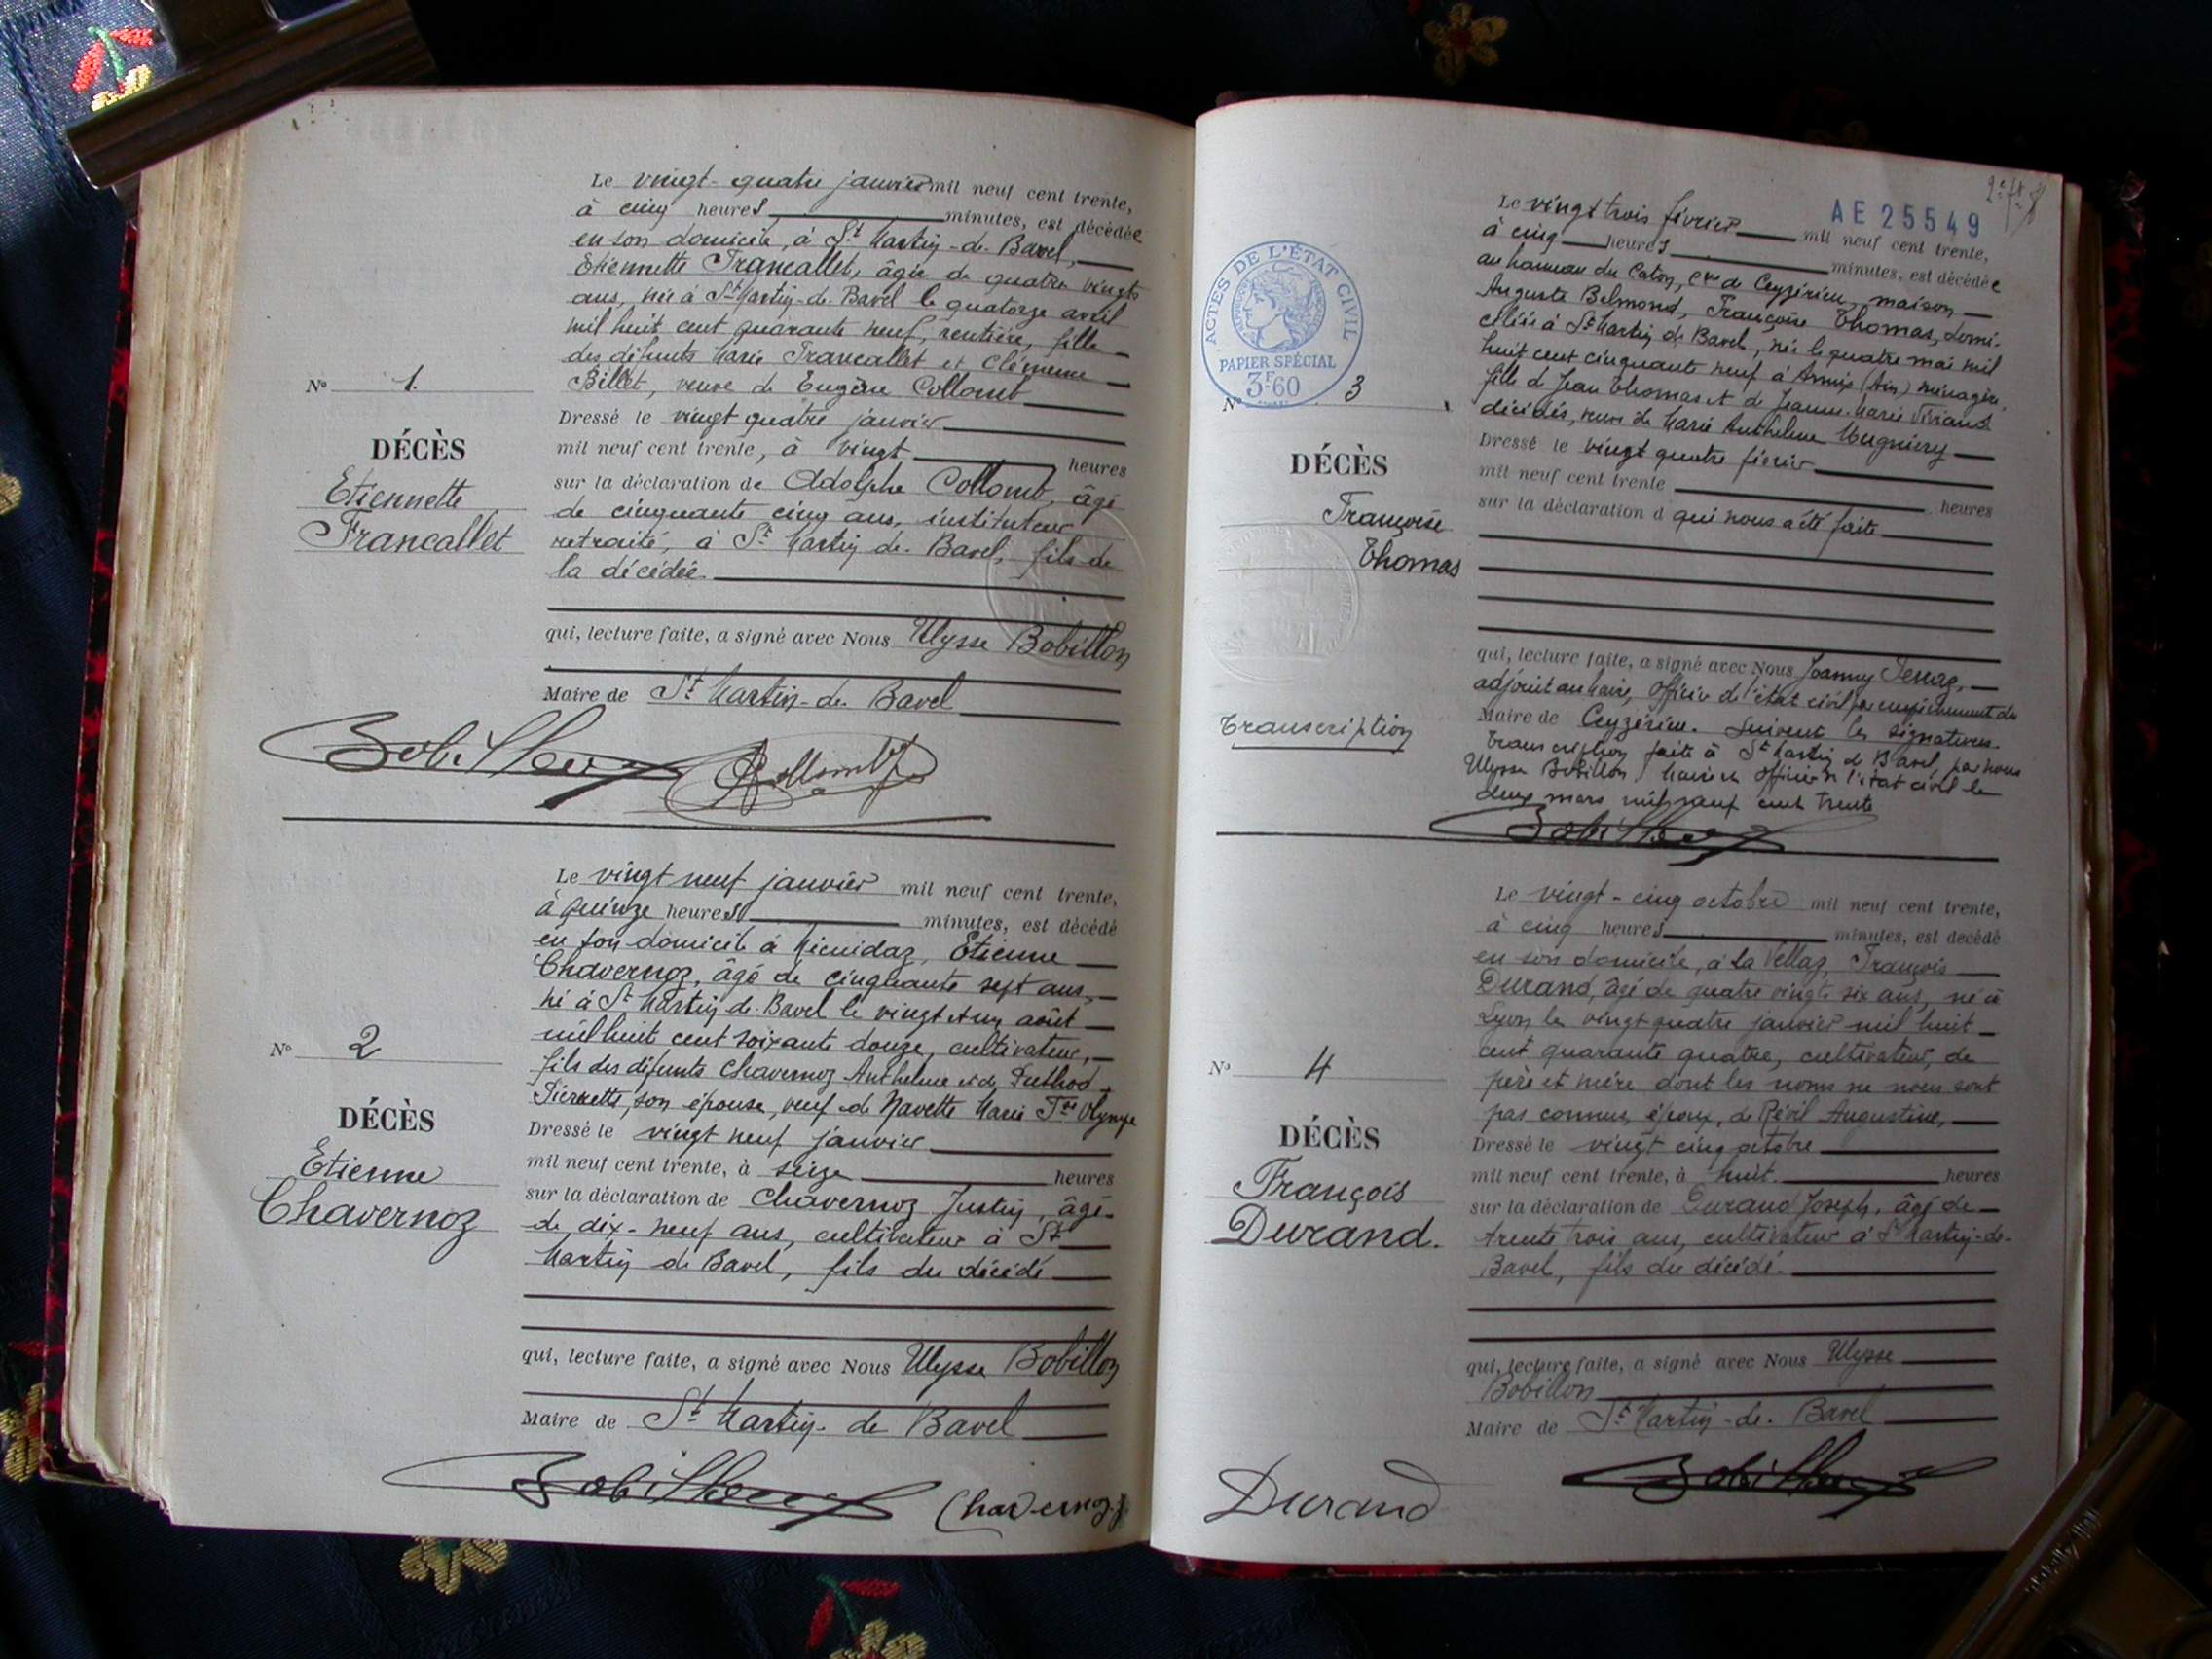 Le vingt-quatre janvier mil neuf cent trente,
à cinq heures minutes, est décédée
en son domicile, à St Martin-de-Bavel,
Etiennette Francallet, âgée de quatre vingts
ans, née à St Martin-de-Bavel le quatorze avril
mil huit cent quarante neuf, rentière, fille
des défunts Marie Francallet et Clémence
Billet, veuve de Eugène Collomb
N° 1.
DÉCÈS
Etiennette
Francallet
Dressé le vingt quatre janvier
mil neuf cent trente, à vingt heures
sur la déclaration de Adolphe Collomb, âgé
de cinquante cinq ans, instituteur
retraité, à St Martin-de-Bavel, fils de
la décédée.
qui, lecture faite, a signé avec Nous Ulysse Bobillon
Maire de St Martin-de-Bavel
Bobillon Collomb
Le vingt neuf janvier mil neuf cent trente,
à quinze heures minutes, est décédé
en son domicile à Etienne
Chavernoz, âgé de cinquante sept ans,
né à St Martin-de-Bavel le vingt et un août
mil huit cent soixante douze, cultivateur,
fils des défunts Chavernoz Anthelme et de
Pierrette, son épouse, veuf de Navette Marie Olympe
N° 2
DÉCÈS
Etienne
Chavernoz
Dressé le vingt neuf janvier
mil neuf cent trente, à seize heures
sur la déclaration de Chavernoz Justin, âgé
de dix-neuf ans, cultivateur à St
Martin de Bavel, fils du décédé
qui, lecture faite, a signé avec Nous Ulysse Bobillon
Maire de St Martin-de Bavel
Bobillon Chavernoz J.
AE 25549
ACTES DE L'ÉTAT CIVIL
PAPIER SPÉCIAL
3F60
Le vingt trois février mil neuf cent trente,
à cinq heures minutes, est décédée
au hameau du Caton, Cne de Ceyzérieu, maison
Auguste Belmond, Françoise Thomas, domi-
ciliée à St Martin de Bavel, née le quatre mai mil
huit cent cinquante neuf à Armix (Ain) ménagère,
fille d Jean Thomas et de Jeanne-Marie Viviand
décédés, veuve de Marie Anthelme Mugniery
N° 3
DÉCÈS
Françoise
Thomas
Dressé le vingt quatre février
mil neuf cent trente heures
sur la déclaration d qui nous a été faite
qui, lecture faite, a signé avec Nous Joanny
adjoint au Maire, officier de l'état civil par empêchement du
Maire de Ceyzérieu. Suivent les signatures.
Transcription
Transcription faite à St Martin de Bavel, par nous
Ulysse Bobillon, Maire officier de l'état civil le
deux mars mil neuf cent trente
Bobillon
Le vingt-cinq octobre mil neuf cent trente,
à cinq heures minutes, est décédé
en son domicile, à la Vellaz, François
Durand, âgé de quatre vingts six ans, né à
Lyon le vingt quatre janvier mil huit
cent quarante quatre, cultivateur, de
père et mère dont les noms ne nous sont
pas connus, époux, de Révil Augustine,
N° 4
DÉCÈS
François
Durand.
Dressé le vingt cinq octobre
mil neuf cent trente, à huit heures
sur la déclaration de Durand Joseph, âgé de
trente trois ans, cultivateur à St Martin-de-
Bavel, fils du décédé.
qui, lecture faite, a signé avec Nous Ulysse
Bobillon
Maire de St Martin-de-Bavel
Durand Bobillon